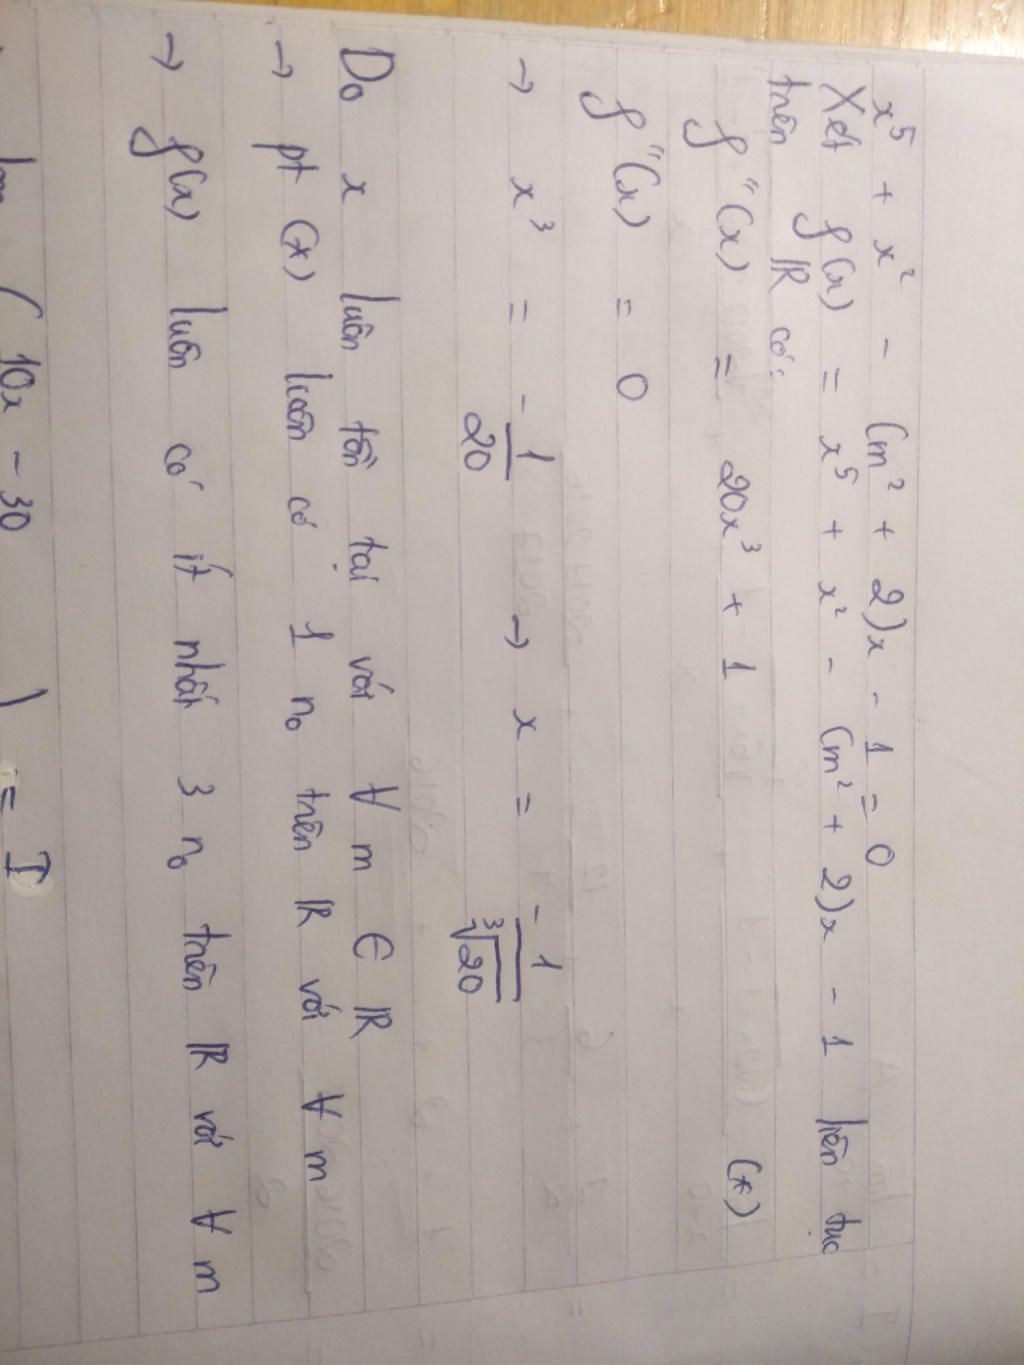 x⁵ + x² - (m² + 2)x - 1 = 0
Xét f(x) = x⁵ + x² - (m² + 2)x - 1 liên tục
trên ℝ có:
f''(x) = 20x³ + 1 (*)
f''(x) = 0
→ x³ = -1/20 → x = -1/∛20
Do x luôn tồn tại với ∀ m ∈ ℝ
→ pt (*) luôn có 1 n₀ trên ℝ với ∀ m
→ f(x) luôn có ít nhất 3 n₀ trên ℝ với ∀ m
( 10x - 30 ) = I